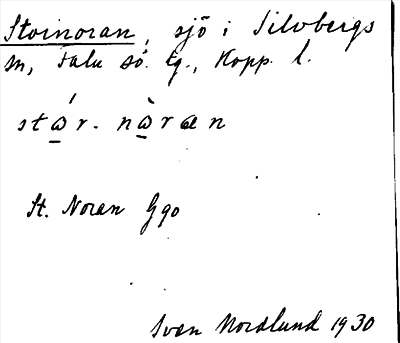 Stornoran, sjö i Silvbergs
sn, Falu sö. tg., Kopp. l.
stǻr- nå̀ræn
St. Noran Gqo
Sven Nordlund 1930